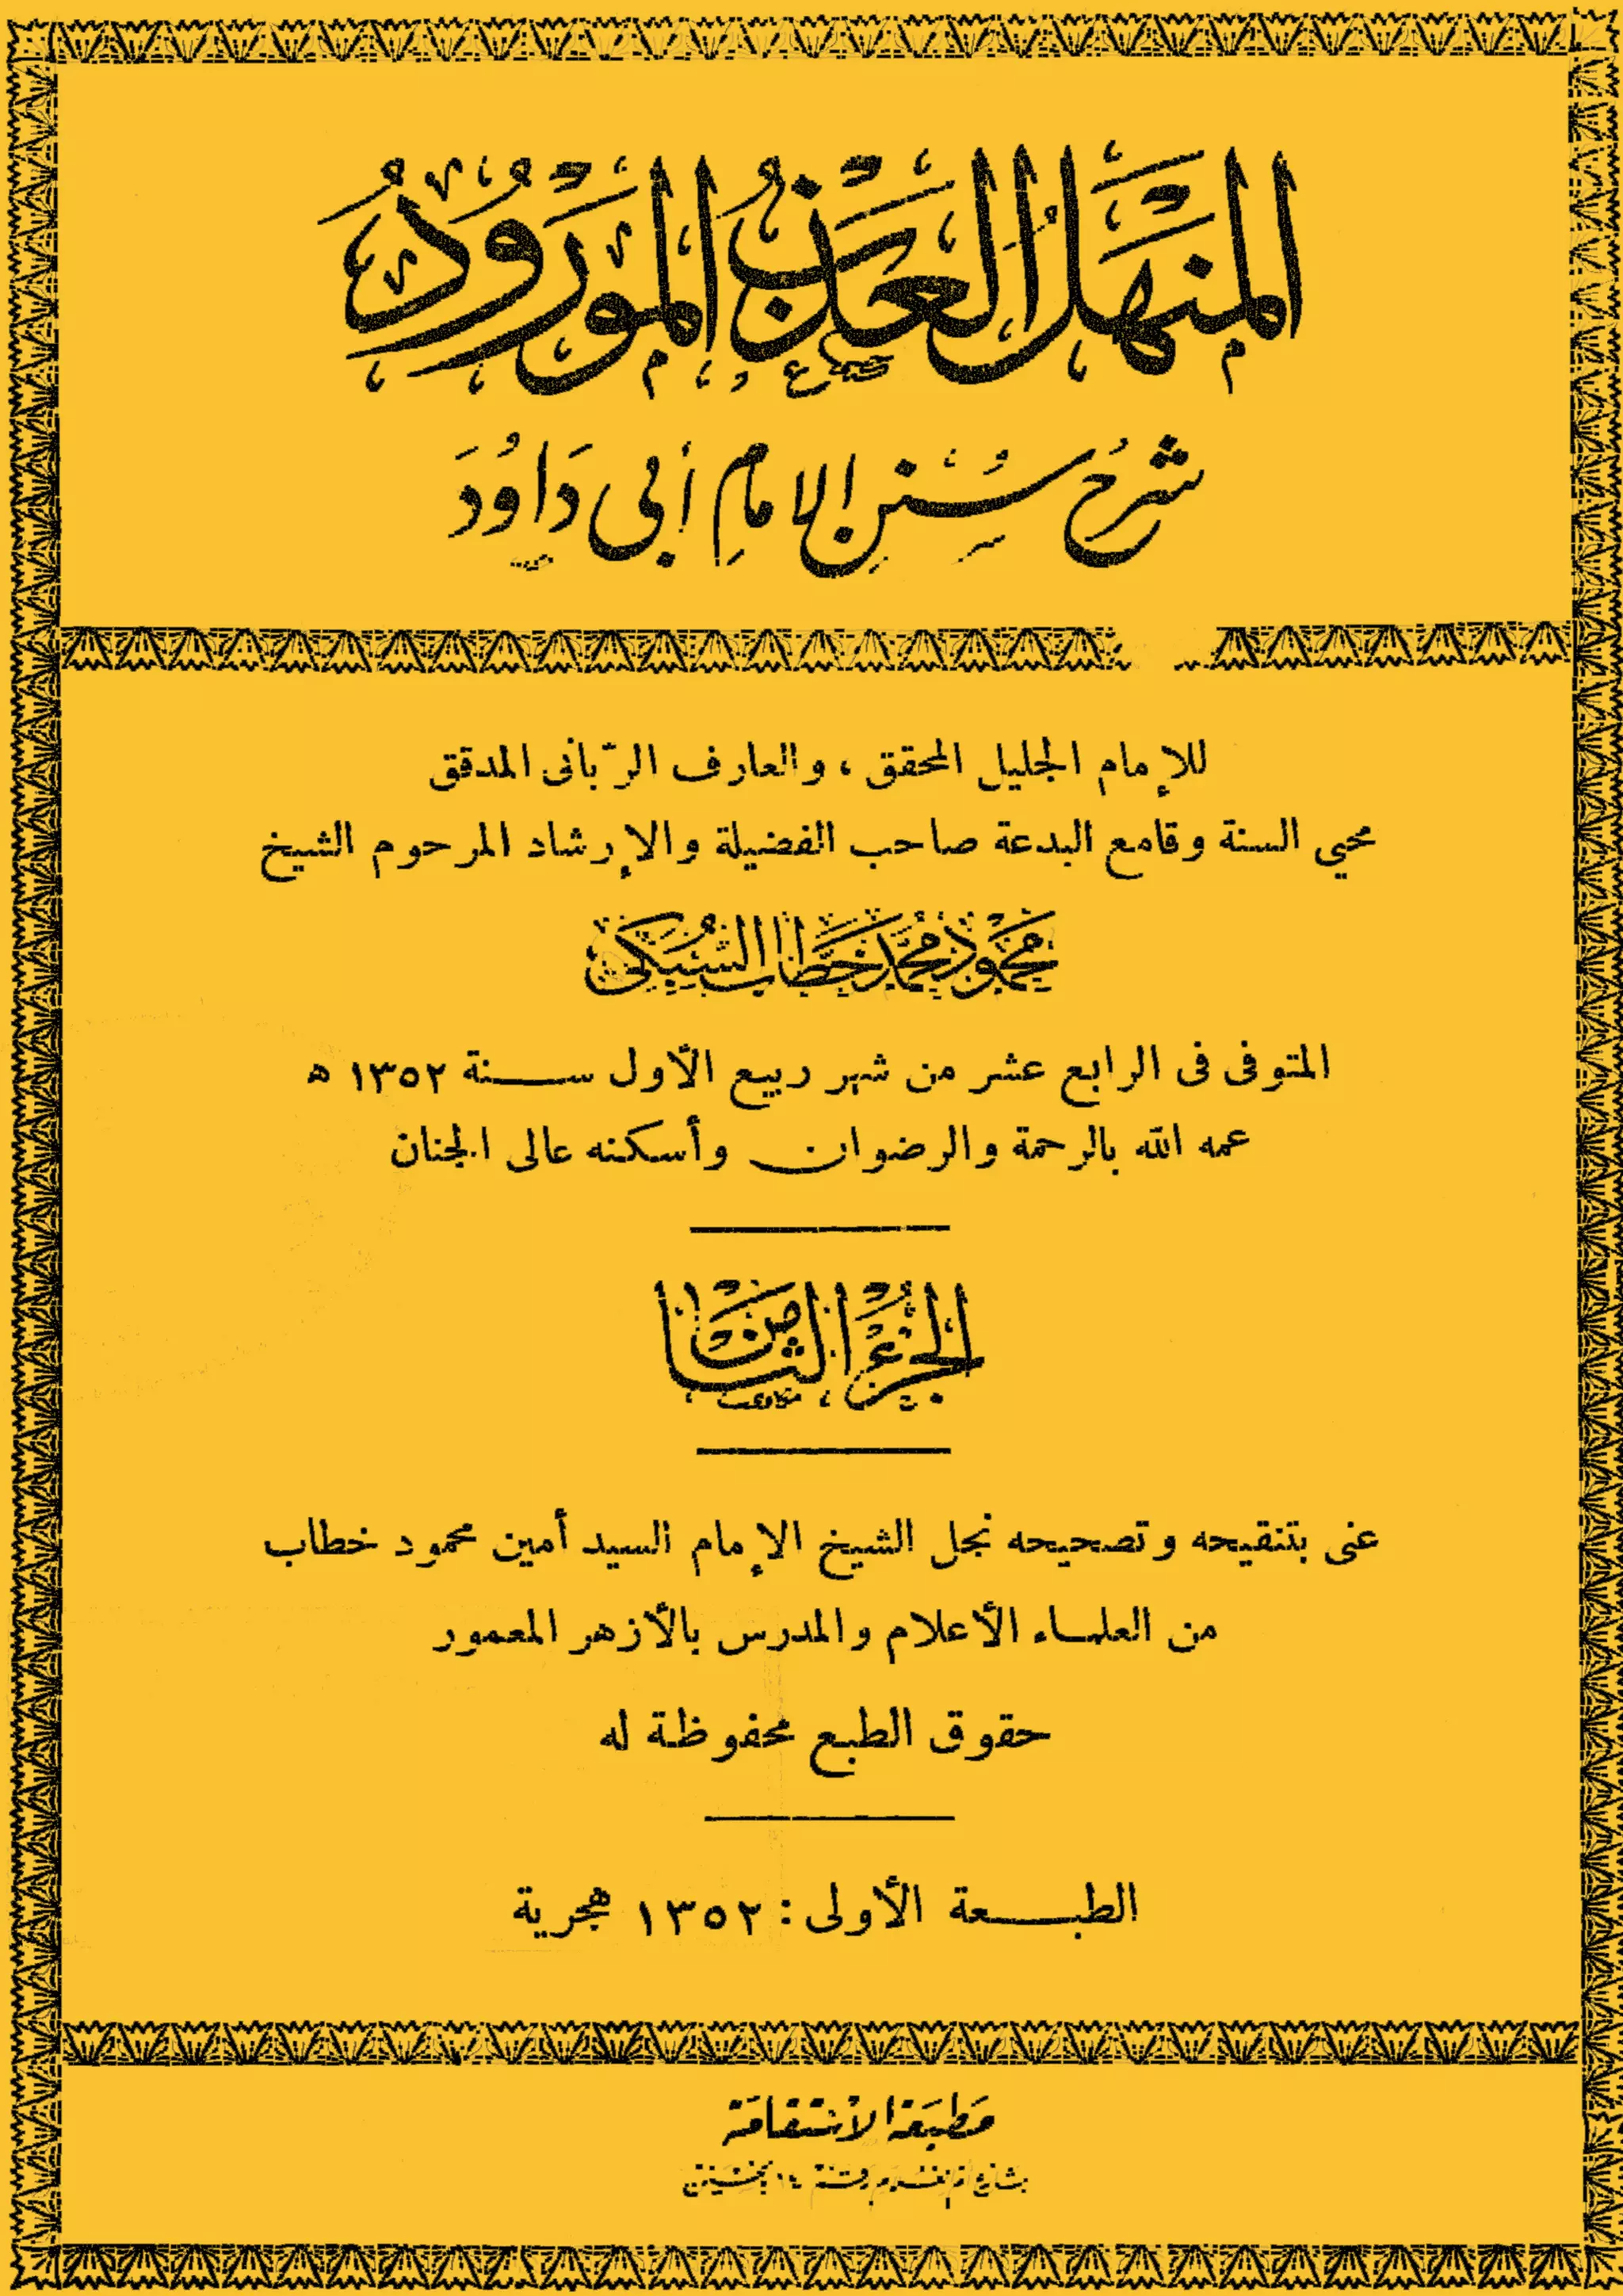 المنهل العذب المورود
شرح سنن الإمام أبي داود
للإمام الجليل المحقق ، والعارف الربّانى المدقق
محيي السنة وقامع البدعة صاحب الفضيلة والإرشاد المرحوم الشيخ
محمود محمد خطاب السبكى
المتوفى فى الرابع عشر من شهر ربيع الأول سنة ١٣٥٢ ه
عمه الله بالرحمة والرضوان وأسكنه عالى الجنان
الجزء الثامن
عنى بتنقيحه وتصحيحه نجل الشيخ الإمام السيد أمين محمود خطاب
من العلماء الأعلام والمدرس بالأزهر المعمور
حقوق الطبع محفوظة له
الطبعة الأولى : ١٣٥٢ هجرية
مطبعة الاستقامة
بشارع